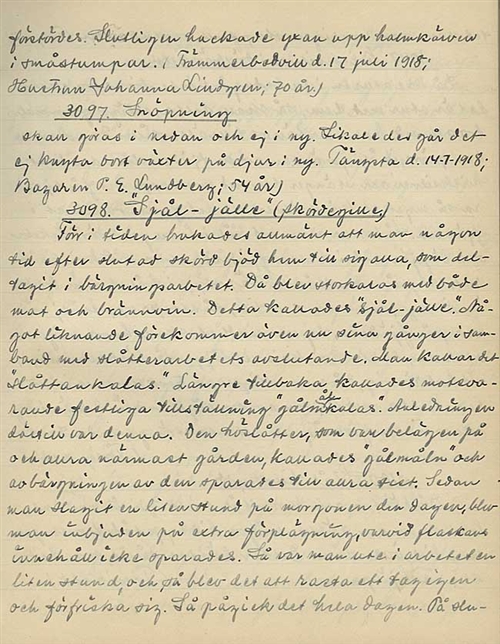 förstördes. Slutligen hackade yxan upp halmkärven
i småstumpar. (Trämmerbodvin d. 17 juli 1918;
Hustrun Johanna Lindgren; 70 år)
3097. Snöpning
skan göras i nedan och ej i ny. Likaledes går det
ej knyta bort växter på djur i ny. Tängsta d. 14-7-1918;
Bagaren P. E. Lundberg; 54 år)
3098. "Själ-jälle" (skördegille)
Förr i tiden brukades allmänt att man någon
tid efter slutad skörd bjöd hem till sig alla, som del-
tagit i bärgningsarbetet. Då blev storkalas med både
mat och brännvin. Detta kallades "själ-jälle". Nå-
got liknande förekommer även nu sina gånger i sam-
band med slåtterarbetets avslutande. Man kallar det
"slåttankalas." Längre tillbaka kallades motsva-
rande festliga tillställning "gålmåkalas". Anledningen
därtill var denna. Den höslåtter, som var belägen på
och allra närmast gården, kallades "gålmåln" och
avbärgningen av den sparades till allra sist. Sedan
man slagit en liten stund på morgonen den dagen, blev
man inbjuden på extra förplägning, varvid flaskans
innehåll icke sparades. Så var man ute i arbetet en
liten stund, och så blev det att rasta ett tag igen
och förfriska sig. Så pågick det hela dagen. På slu-